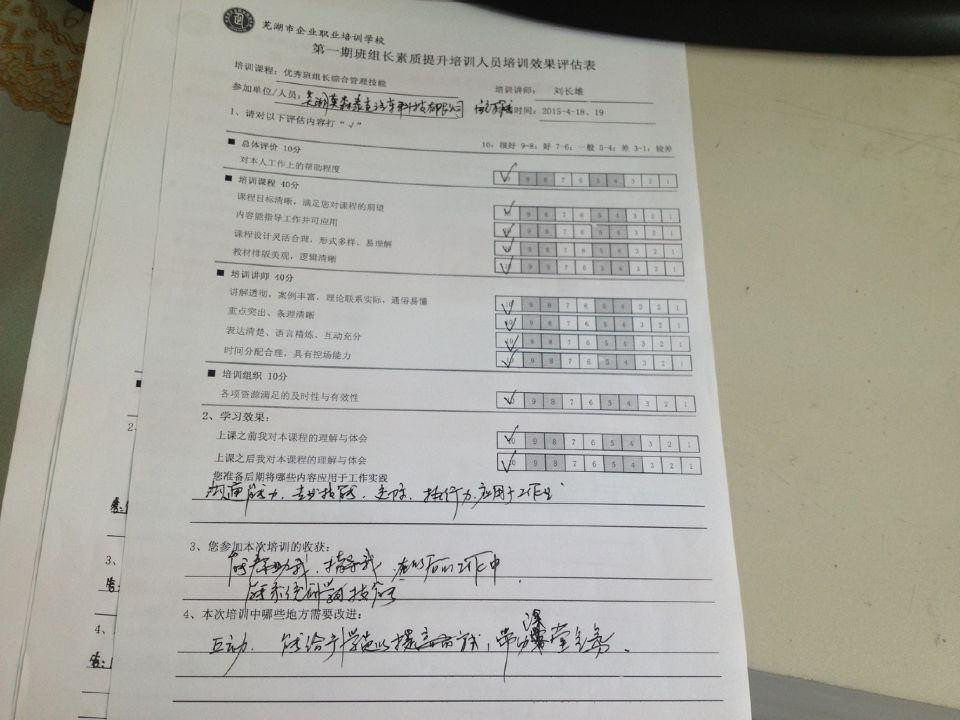 芜湖市企业职业培训学校
第一期班组长素质提升培训人员培训效果评估表
培训课程：优秀班组长综合管理技能 培训讲师： 刘长雄
参加单位/人员：芜湖莫森泰克汽车科技有限公司 时间：2015-4-18、19
1、请对以下评估内容打“√”
■ 总体评价 10分 10：很好 9-8：好 7-6：一般 5-4：差 3-1：较差
对本人工作上的帮助程度 √ 10 9 8 7 6 5 4 3 2 1
■ 培训课程 40分
课程目标清晰，满足您对课程的期望 √ 10 9 8 7 6 5 4 3 2 1
内容能指导工作并可应用 √ 10 9 8 7 6 5 4 3 2 1
课程设计灵活合理，形式多样，易理解 √ 10 9 8 7 6 5 4 3 2 1
教材排版美观，逻辑清晰 √ 10 9 8 7 6 5 4 3 2 1
■ 培训讲师 40分
讲解透彻，案例丰富，理论联系实际，通俗易懂 √ 10 9 8 7 6 5 4 3 2 1
重点突出、条理清晰 √ 10 9 8 7 6 5 4 3 2 1
表达清楚、语言精炼、互动充分 √ 10 9 8 7 6 5 4 3 2 1
时间分配合理，具有控场能力 √ 10 9 8 7 6 5 4 3 2 1
■ 培训组织 10分
各项资源满足的及时性与有效性 √ 10 9 8 7 6 5 4 3 2 1
2、学习效果：
上课之前我对本课程的理解与体会 √ 10 9 8 7 6 5 4 3 2 1
上课之后我对本课程的理解与体会 √ 10 9 8 7 6 5 4 3 2 1
您准备后期将哪些内容应用于工作实践
沟通能力、执行力应用于工作
3、您参加本次培训的收获：
能帮助我，指导我 在以后的工作中
能系统的学习技能
4、本次培训中哪些地方需要改进：
互动、能给予学员以提高